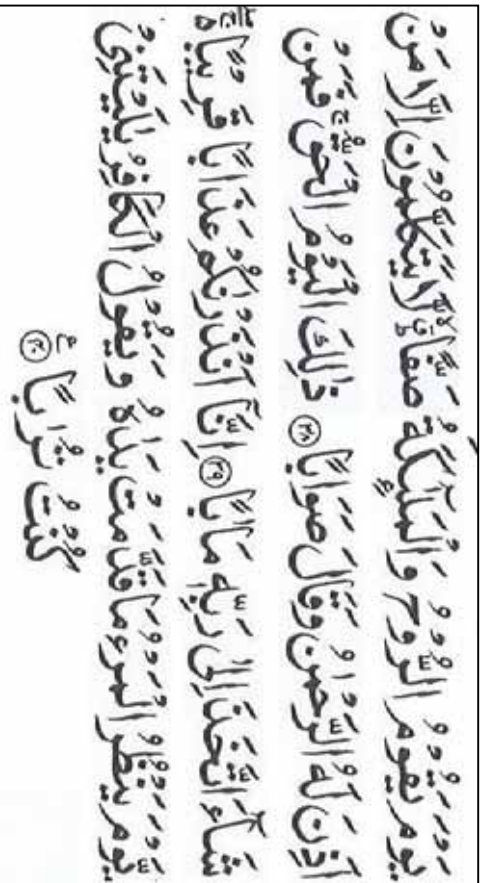 يَوْمَ يَقُوْمُ الرُّوْحُ وَالْمَلٰٓئِكَةُ صَفًّا ۙۗ لَّا يَتَكَلَّمُوْنَ اِلَّا مَنْ
اَذِنَ لَهُ الرَّحْمٰنُ وَقَالَ صَوَابًا ۳۸ ذٰلِكَ الْيَوْمُ الْحَقُّ ۚ فَمَنْ
شَآءَ اتَّخَذَ اِلٰى رَبِّهٖ مَاٰبًا ۳۹ اِنَّآ اَنْذَرْنٰكُمْ عَذَابًا قَرِيْبًا ۚ
يَّوْمَ يَنْظُرُ الْمَرْءُ مَا قَدَّمَتْ يَدٰهُ وَيَقُوْلُ الْكٰفِرُ يٰلَيْتَنِيْ
كُنْتُ تُرَابًا ۴۰